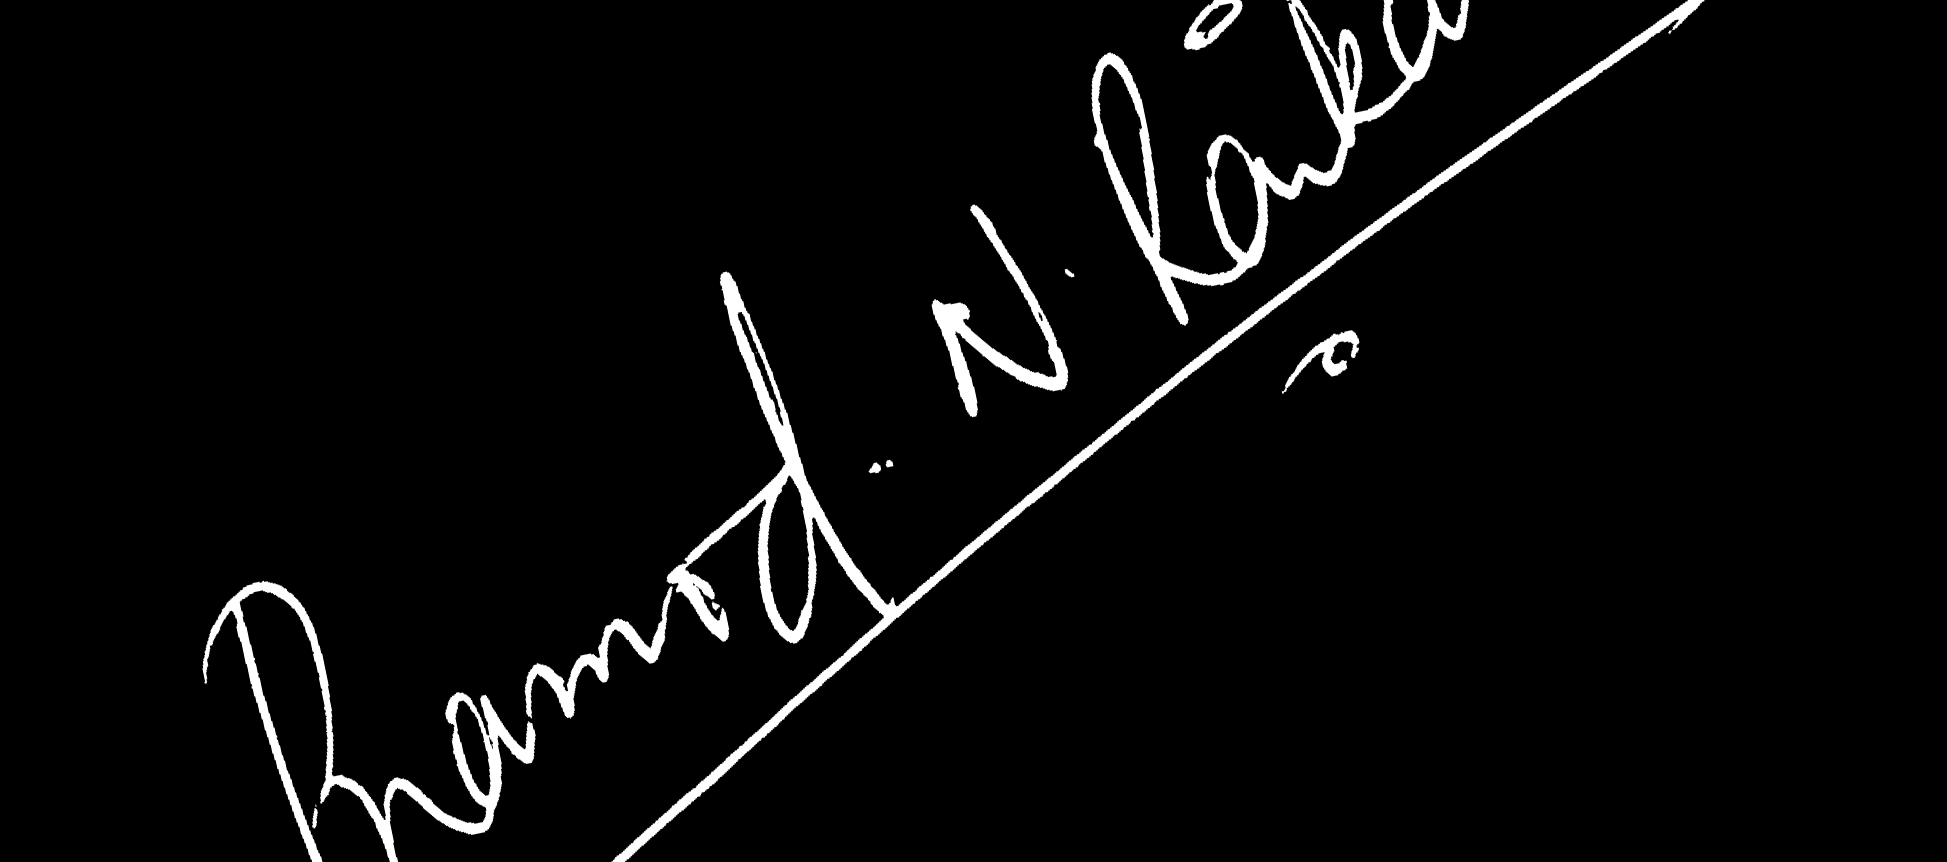 Pramod. N. Ranka